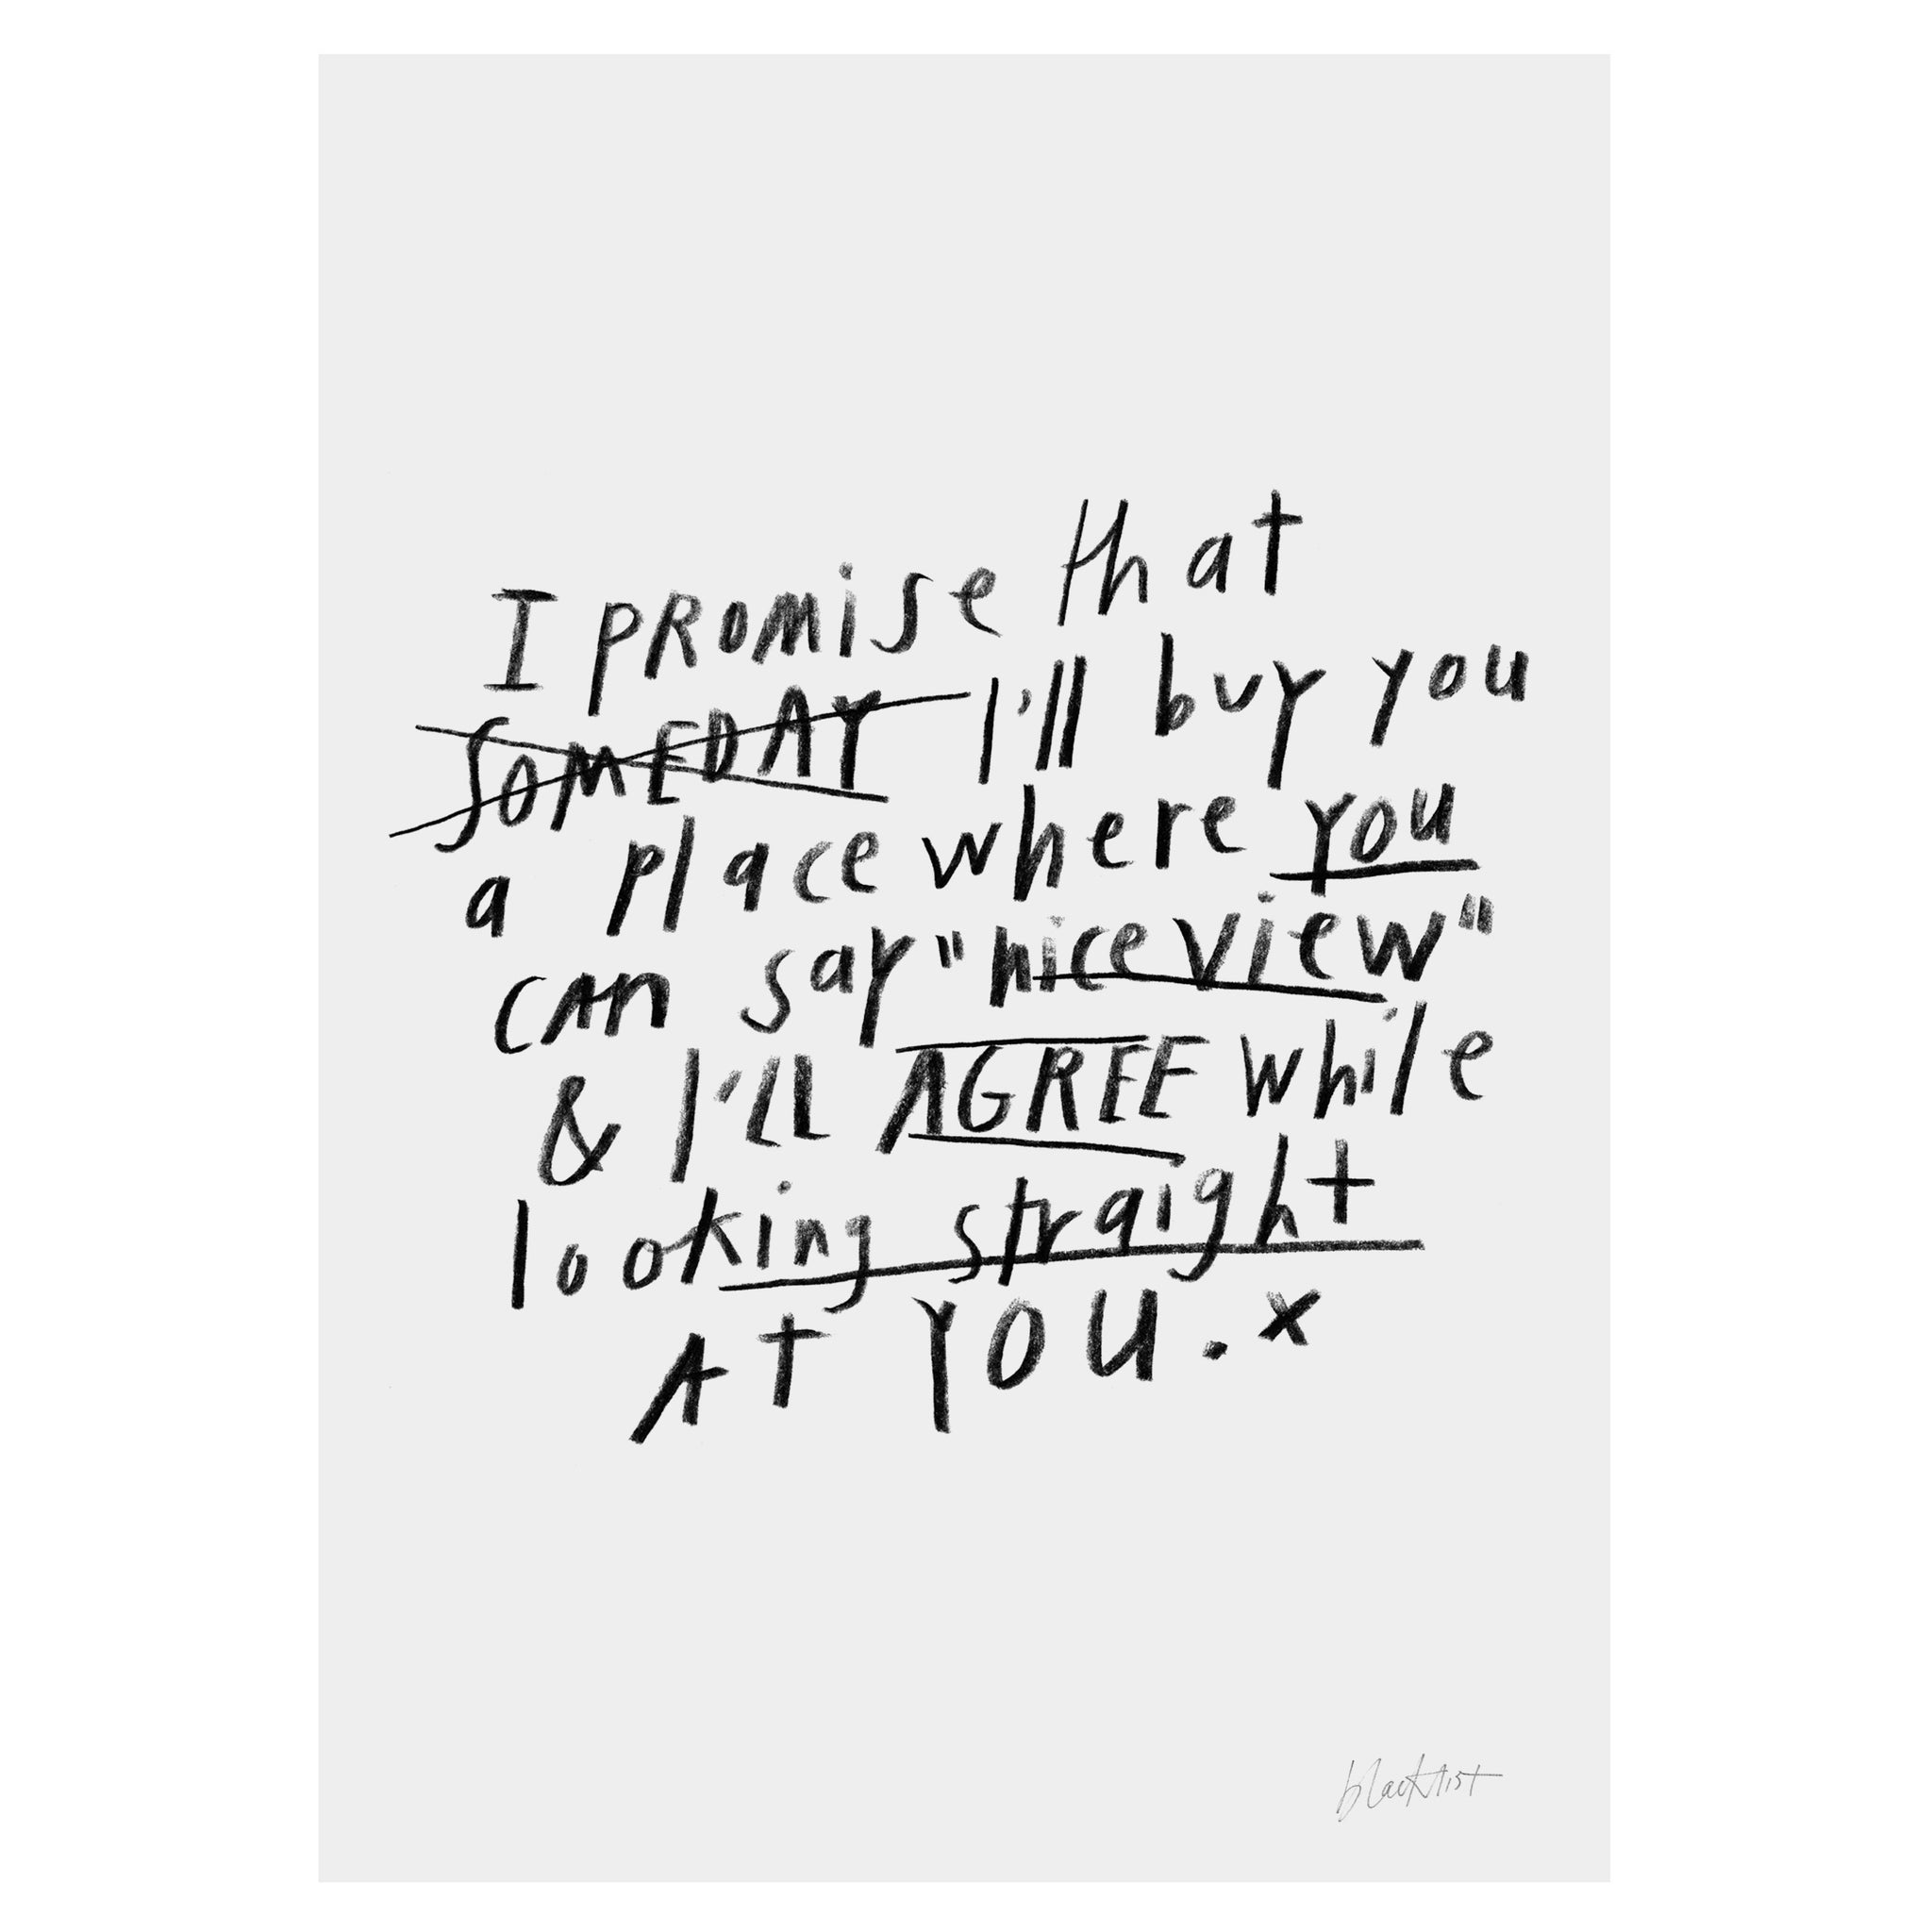 I promise that
SOMEDAY I'll buy you
a place where you
can say "nice view"
& I'LL AGREE while
looking straight
AT YOU. x